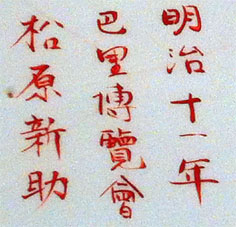 明治十一年
巴里博覽會
松原新助